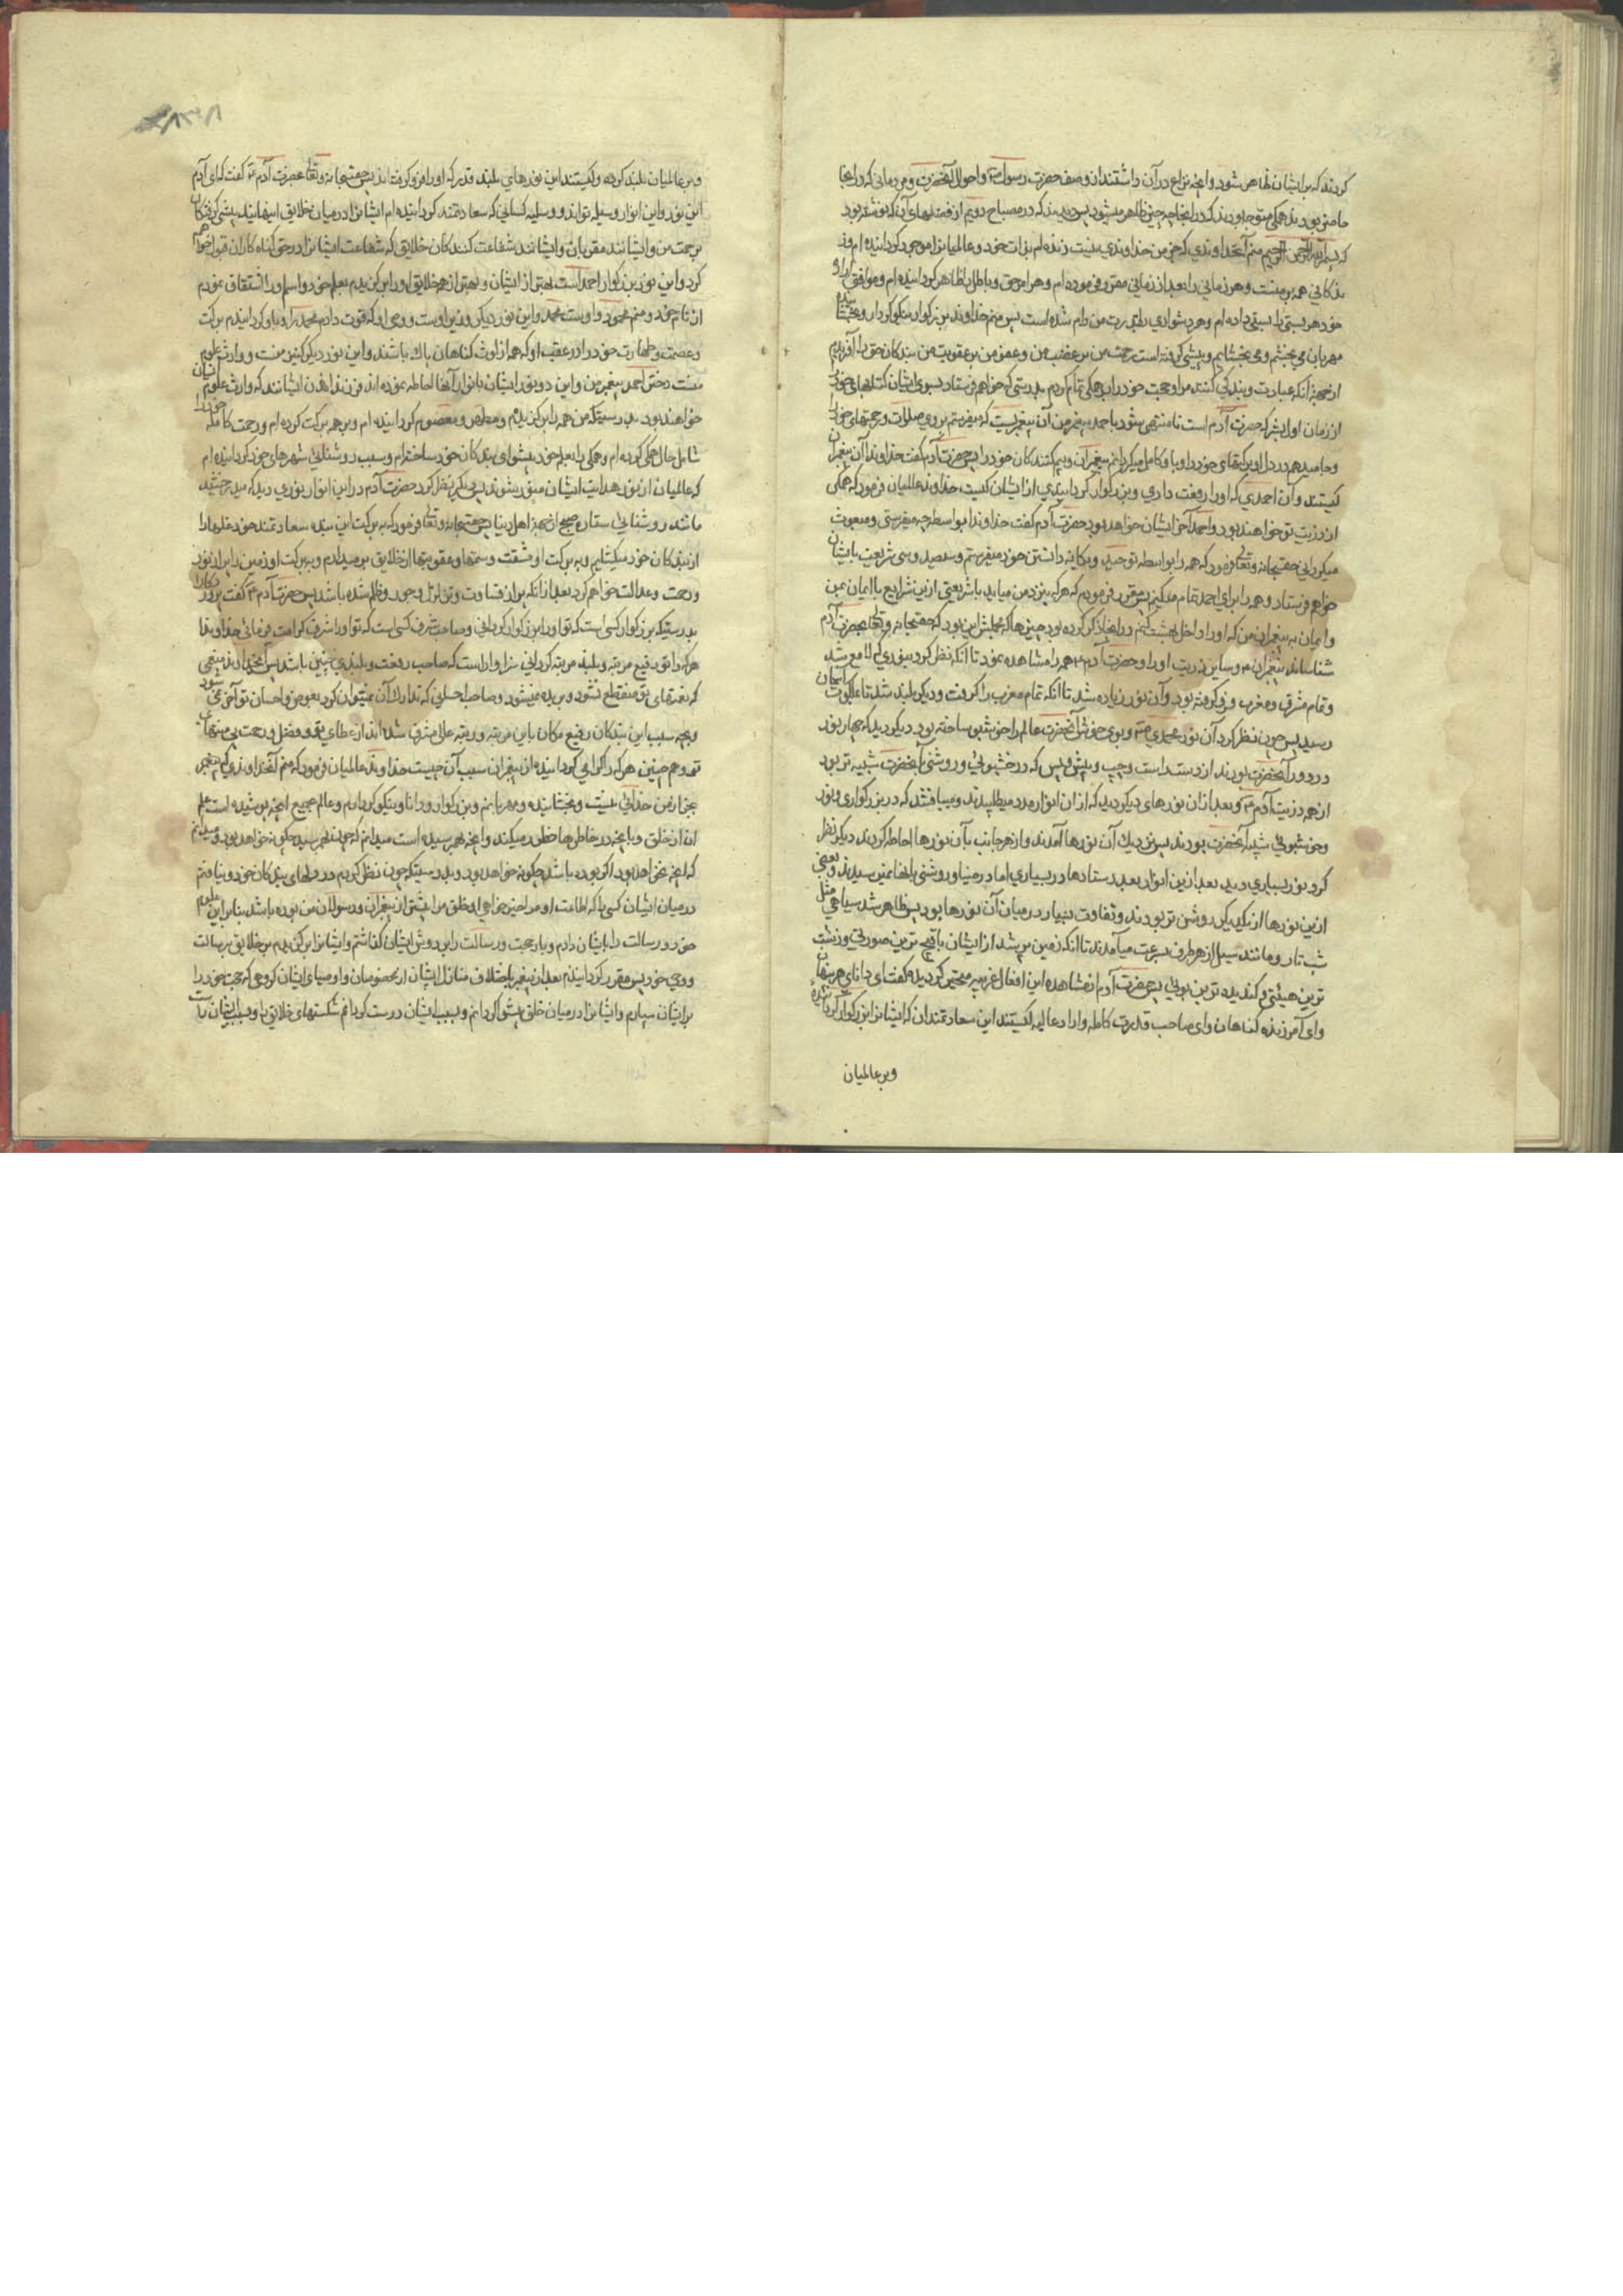 کردند که بر ایشان ظاهر شود و آنچه نزاع در آن داشتند از وصف حضرت رسول ص و احوال آنحضرت و مردمانی که در انجا
حاضر بودند همکی متوجه بودند که در انجا چه چیز ظاهر میشود پس دیدند که در مصباح دویم از قتلهای آن که نوشته بود
که بسم الله الرحمن الرحیم منم آنخداوندی که جز من خداوندی نیست زنده ام بذات خود و عالمیانرا موجود کردانیده ام و
بندکانی همه بر منست و هر زمانی را بعد از زمانی مقرر فرموده ام و هر امر حق و باطل را ظاهر کردانیده ام و موافق اراده
خود هر سببی را سببی داده ام و هر دشواری رام من شده است پس منم خداوند بزرکوار نیکو کردار و بخشایندهٔ
مهربان می بخشم و می بخشایم و پیشی کرفته است رحمت من بر غضب من و عفو من بر عقوبت من بندکان خود را آفریدم
از جهة آنکه عبادت و بندکی کنند مرا و حجت خود را بر همکی تمام کردم بدرستی که خواهم فرستاد بسوی ایشان کتابهای خود
از زمان اول بشر که حضرت آدم است تا منتهی شود باحمد پیغمبر من آن پیغمبریست که میفرستم بر وی صلوات و رحمتهای خود را
و جا میدهم در دل او برکتهای خود را و باو کامل میکردانم پیغمبرآن و بیم کنندکان خود را پس حضرت آدم کفت خداوندا آن پیغمبران
کیستند و آن احمدی که او را رفعت داری و بزرکوار کردانیدی از ایشان کیست خداوند عالمیان فرمود که همکی
از ذریت تو خواهند بود و احمد آخر ایشان خواهد بود حضرت آدم کفت خداوندا بواسطه چه میفرستی و مبعوث
میکردانی حقسبحانه وتعالی فرمود که همه را بواسطه توحید و یکانه دانستن خود میفرستم و سیصد و سی شریعت بایشان
خواهم فرستاد و همه را برای احمد تمام میکنم پس مقرر فرمودم که هرکه بنزد من میاید باشریعتی ازین شرایع با ایمان بمن
و ایمان به پیغمبران من که او را داخل بهشت کنم در انجا ذکر کرده بود چیزها که مجملش این بود که حقسبحانه و تعالی بحضرت آدم
شناسانید پیغمبران را و سایر ذریت او را و حضرت آدم ع همه را مشاهده نمود تا انکه نظر کرد بنوری که لامع شد
و تمام مشرق و مغرب فرو کرفته بود و آن نور زیاده شد تا انکه تمام مغرب را کرفت و دیکر بلند شد تا بملکوت آسمان
رسید پس چون نظر کرد آن نور محمدی ص و بوی خوش آنحضرت عالم را خوشبو ساخته بود دیکر دید که چهار نور
در دور آنحضرت بودند از دست راست و چپ و پیش و پس که در خشبوئی و روشنی آنحضرت شبیه تر بود
از همه ذریت آدم ع و بعد از ان نورهای دیکر دید که از ان انوار مدد میطلبیدند و میافتند که در بزرکواری و نور
و خوشبوئی شبیه آنحضرت بودند پس نزدیک آن نورها آمدند و از هر جانب بآن نورها احاطه کردند دیکر نظر
کرد نور بسیاری دید بعد ازین انوار بعدد ستارها در بسیاری اما در ضیا و روشنی بانها نمیرسیدند و بعضی
ازین نورها از یکدیکر روشن تر بودند و تفاوت بسیار در میان آن نورها بود پس ظاهر شد سیاهی مثل
شب تار و مانند سیل از هر طرف بسرعت میآمدند تا آنکه زمین پر شد از ایشان با قبیح ترین صورتی و زشت
ترین هیئتی و کندیده ترین بوئی پس حضرت آدم از مشاهده این افعال غریبه متحیر کردید و کفت ای دانای هر پنهان
و ای آمرزنده کناهان و ای صاحب قدرت کامله و ارادهٔ عالیه کیستند این سعادتمندان که ایشانرا بزرکوار کردانیدهٔ
و بر عالمیان
و بر عالمیان بلند کرده و کیستند این نورهای بلند قدر که او را فرو کرفته اند پس حقسبحانه وتعالی بحضرت آدم ع کفت که ای آدم
این نور و این انوار وسیله تواند و وسیله کسانی که سعادتمند کردانیده ام ایشانرا در میان خلایق اینهایند پیشی کرفتکان
برحمت من و ایشانند مقربان و ایشانند شفاعت کنندکان خلایق که شفاعت ایشانرا در حق کناه کاران قبول خواهم
کرد و این نور بزرکوار احمد است بهتر از ایشان و بهتر از همه خلایق او را برکزیدم بعلم خود و اسم او را اشتقاق نمودم
از نام خود و منم محمود و اوست محمد و این نور دیکر وزیر اوست و وصی او که قوت دادم محمد را و باو کردانیدم برکت
و عصمت و طهارت خود را در عقب او که همه از لوث کناهان پاک باشند و این نور دیکر کنیز منست و وارث علوم
منست دختر احمد پیغمبر من و این دو نور ایشان بانوار آنها احاطه نموده اند فرزندانند ایشانند که وارث علوم ایشان
خواهند بود بدرستیکه من همه را برکزیدم و مطهر و معصوم کردانیده ام و بر همه برکت کرده ام و رحمت کاملهٔ خود را
شامل حال همکی کرده ام و همکی را بعلم خود پیشوای بندکان خود ساخته ام و سبب روشنائی شهرهای خود کردانیده ام
که عالمیان از نور هدایت ایشان منور میشوند پس دیکر نظر کرد حضرت آدم در این انوار نوری دید که میدرخشید
مانند روشنائی ستاره صبح از جهة اهل دنیا پس حقسبحانه و تعالی فرمود که به برکت این بنده سعادتمند خود غلها را
از بندکان خود میکشایم و به برکت او مشقت و ستمها و عقوبتها از خلایق برمیدارم و به برکت او زمین را پر از نور
و رحمت و عدالت خواهم کرد بعد از انکه پر از قساوت و تزلزل و جور و ظلم شده باشد پس حضرت آدم ع کفت پروردکارا
بدرستیکه بزرکوار کسی است که تو او را بزرکوار کردانی و صاحب شرف کسی است که تو او را شرف کرامت فرمائی خداوندا
هرکه را تو رفیع مرتبه و بلند مرتبه کردانی سزاوار است که صاحب رفعت و بلندی چنین باشد پس آنخداوند منعمی
که نعمتهای تو منقطع نشود و بریده نمیشود و صاحب احسانی که تدارک آن نمیتوان کرد بعوض و احسان تو آخر نمی شود
و بچه سبب این بندکان رفیع مکان باین مرتبه و رتبه عالی مشرف شده اند از عطای تو و فضل و رحمت بی منتهای
تو و همچنین هرکه را کرامی کردانیده از پیغمبران سبب آن چیست خداوند عالمیان فرمود که منم آنخداوندی که بغیر
بجز از من خدائی نیست و بخشاینده و مهربانم و بزرکوار و دانا و نیکو کردارم و عالم بجمیع آنچه پوشیده است علم
ان از خلق و بآنچه در خاطرها خطور میکند و آنچه بهم نرسیده است میدانم که چون بهم رسد چکونه خواهد بود و میدانم
که آنچه نخواهد بود اکر بوده باشد چکونه خواهد بود و بدرستیکه چون نظر کردم در دلهای بندکان خود و نیافتم
در میان ایشان کسی را که اطاعت او مر مرا و خیر خواهی او خلق مرا بیشتر از پیغمبران و رسولان من بوده باشد بنابراین علم
خود و رسالت را بایشان دادم و بار حجت و رسالت را بر دوش ایشان کذاشتم و ایشانرا برکزیدم بر خلایق برسالت
و وحی خود پس مقرر کردانیدم بعد از پیغمبر باختلاف منازل ایشان از مخصوصان و اوصیای ایشان کروهی که حجت خود را
بر ایشان سپارم و ایشانرا در میان خلق پیشوا کردانم و بسبب ایشان درست کردانم شکستهای خلایق را و بسبب ایشان راست